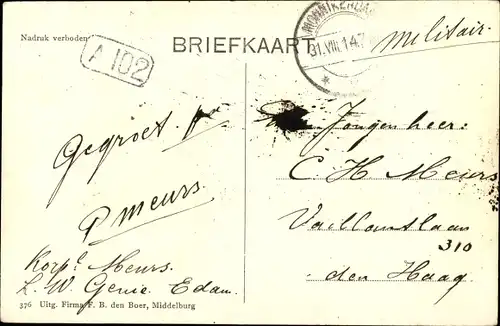 Nadruk verboden
A 102
BRIEFKAART
31.VIII.14.7
Militair.
Gegroet.
P Meurs.
Korpl. Meurs.
L. W. Genie. Edam.
376 Uitg. Firma F. B. den Boer, Middelburg
De Jongen heer:
C. H. Meurs
Vaillantlaan
310
den Haag.